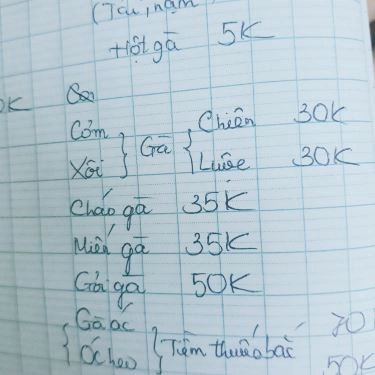 (Tái, nạm
+ Hột gà 5K
Cơm } Gà { Chiên 30K
Xôi } { Luộc 30K
Cháo gà 35K
Miến gà 35K
Gỏi gà 50K
{ Gà ác } Tiềm thuốc bắc 70
{ Óc heo } 50K